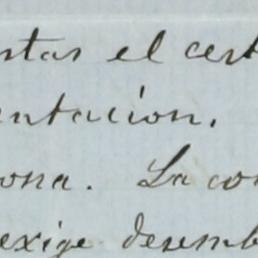 stas el cert
entacion.
ona. La con
exige desemb